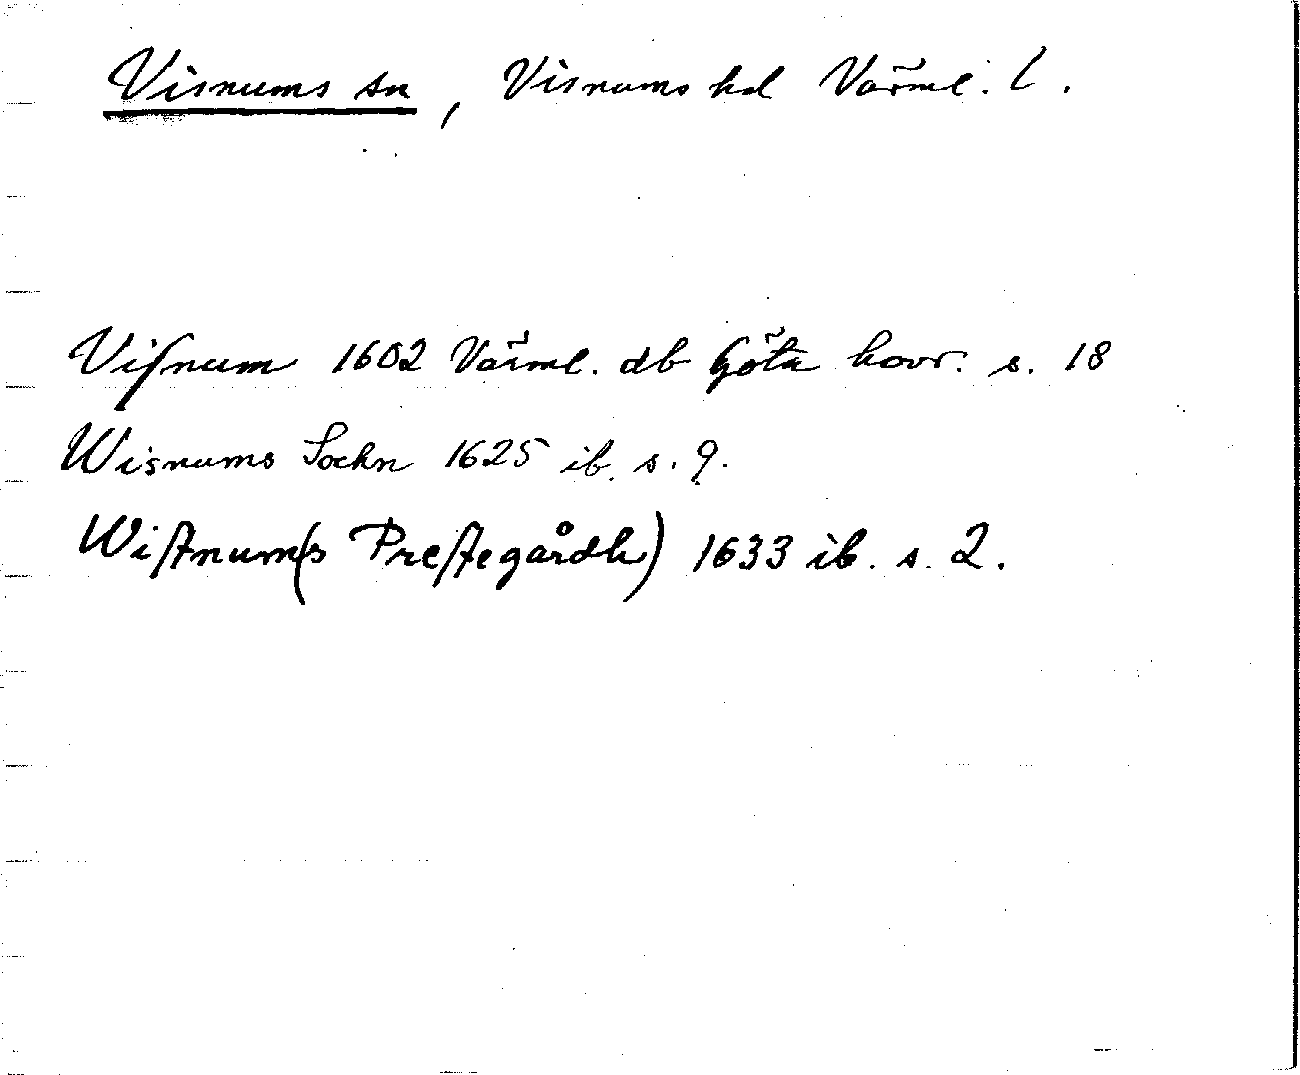 Visnums sn, Visnums hd Värml. l.
Viſnum 1602 Värml. db Göta hovr. s. 18
Wisnums Sochn 1625 ib. s. 9.
Wiſtnum(s Preſtegårdh) 1633 ib. s. 2.